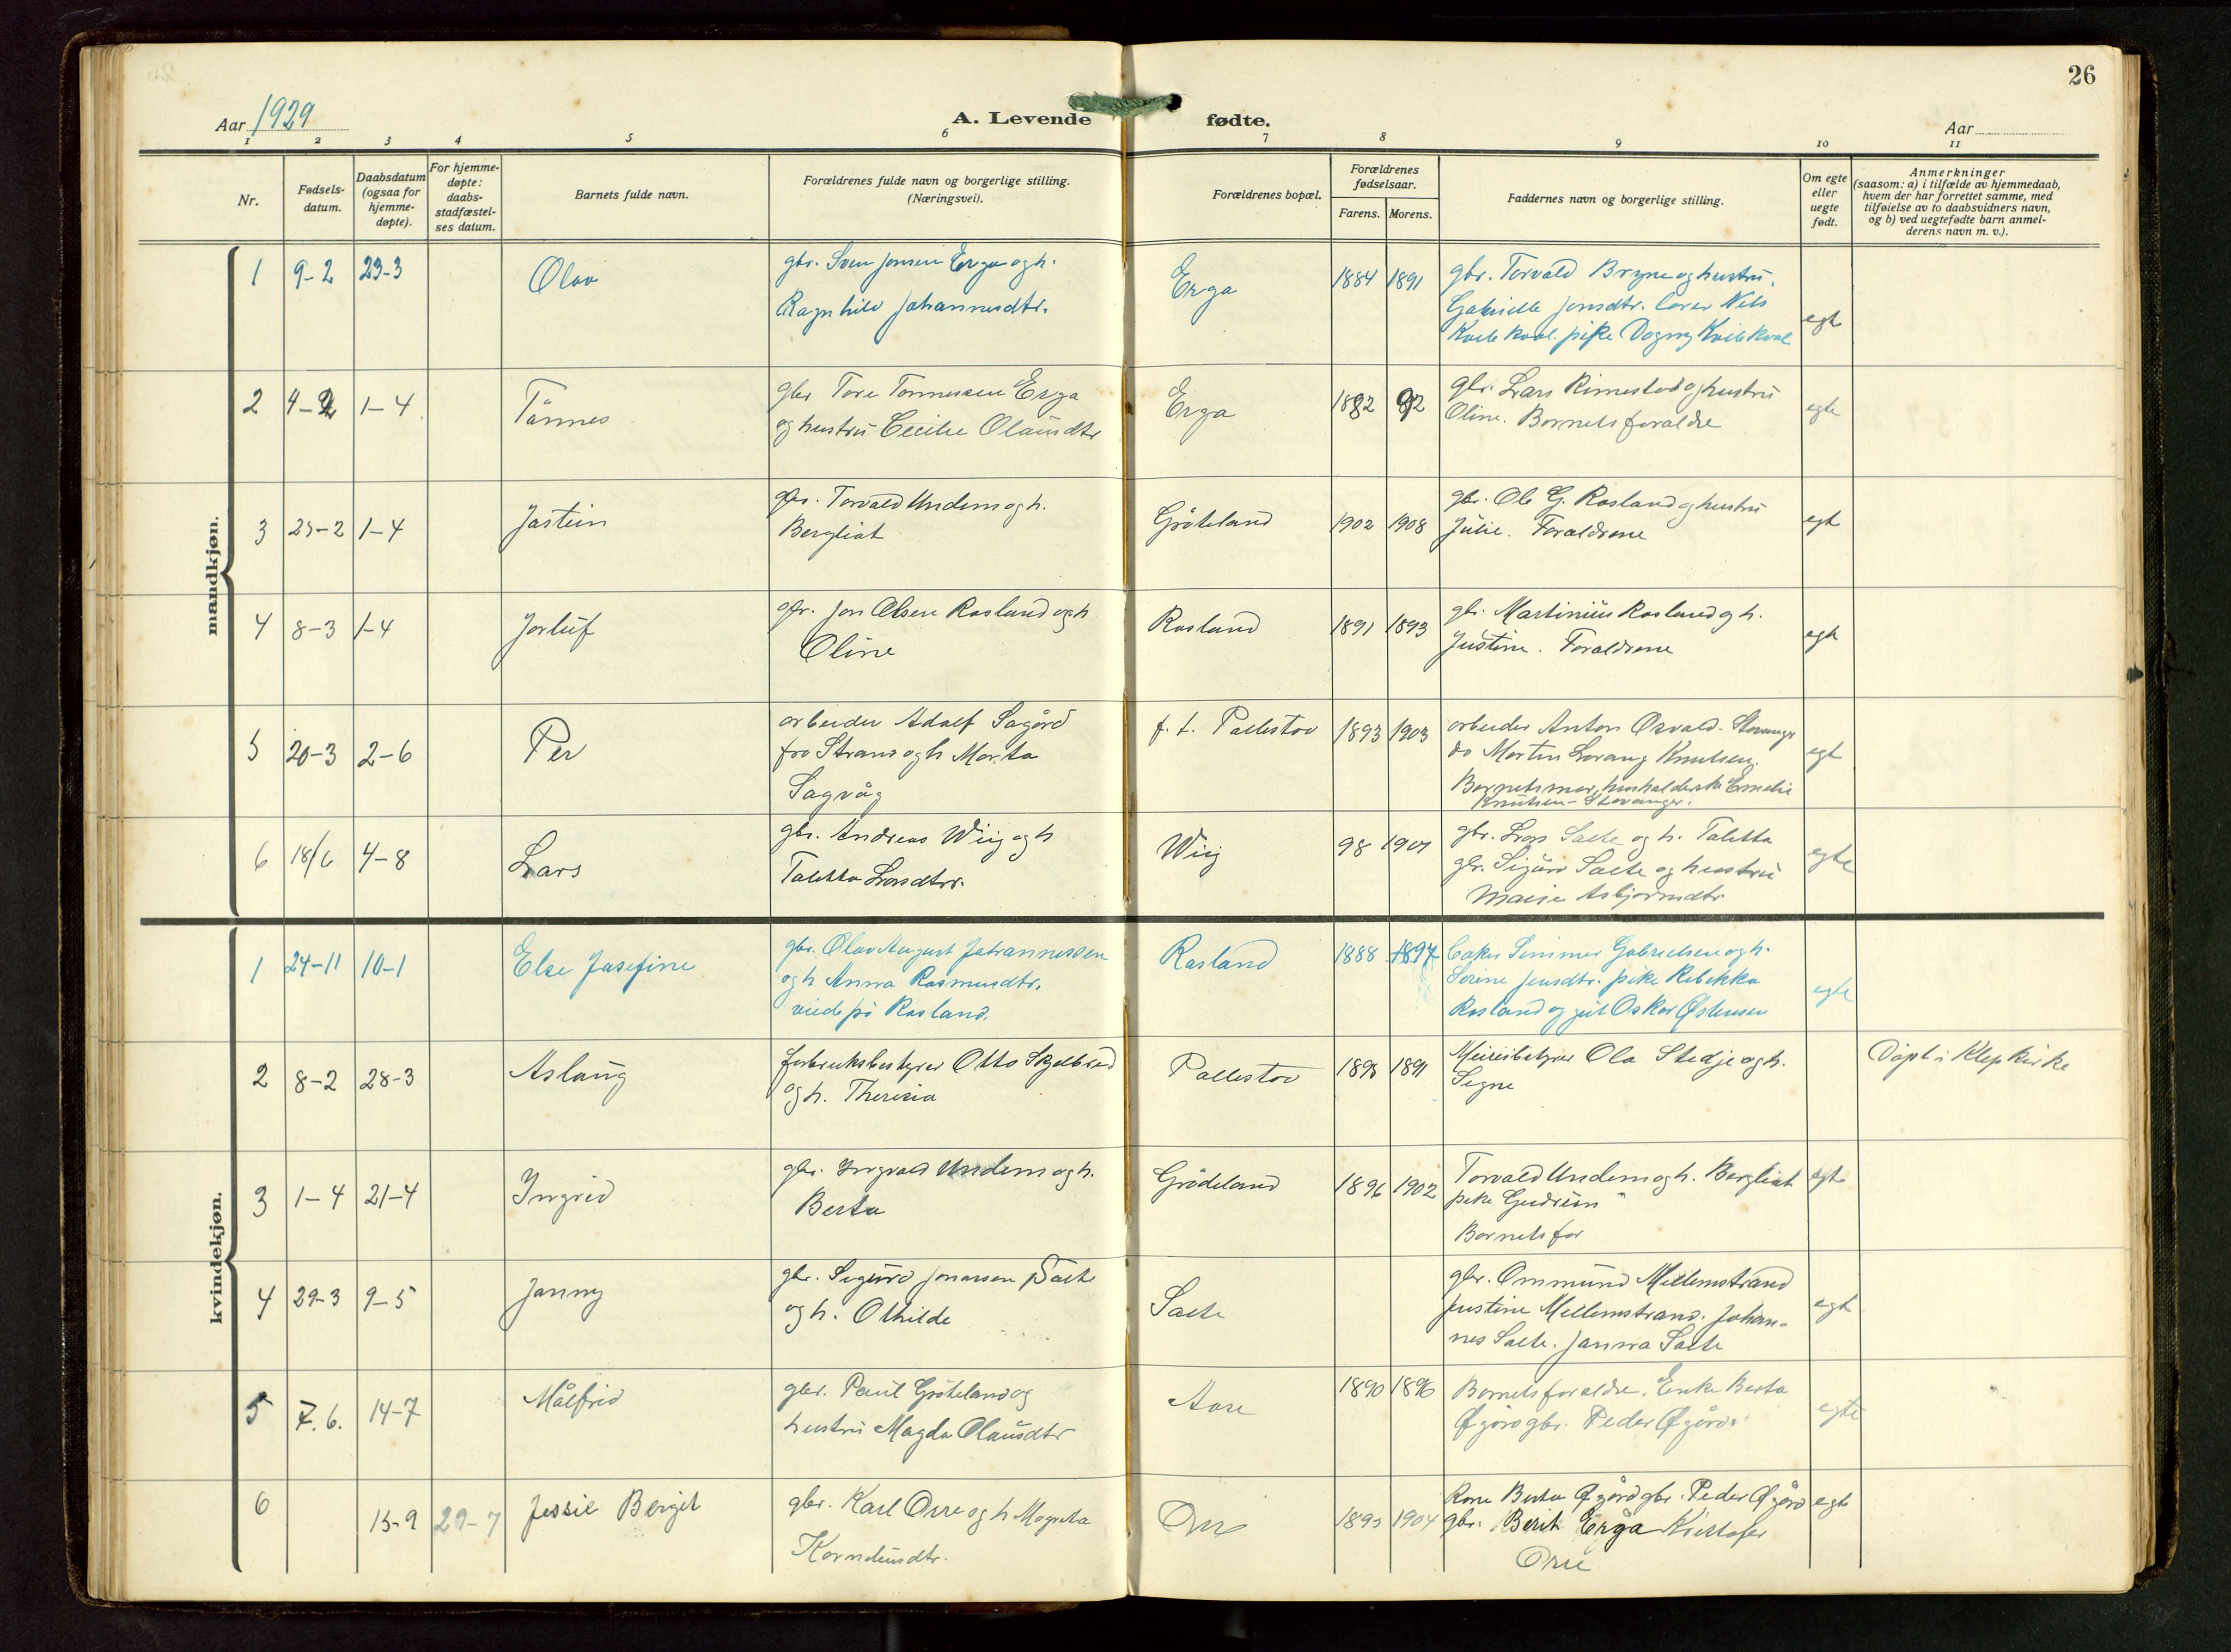 26
Aar 1929
A. Levende fødte.
Aar
1 2 3 4 5 6 7 8 9 10 11
Nr.
Fødsels-
datum.
Daabsdatum
(ogsaa for
hjemme-
døpte).
For hjemme-
døpte:
daabs-
stadfæstel-
ses datum.
Barnets fulde navn.
Forældrenes fulde navn og borgerlige stilling.
(Næringsvei).
Forældrenes bopæl.
Forældrenes
fødselsaar.
Farens. Morens.
Faddernes navn og borgerlige stilling.
Om egte
eller
uegte
født.
Anmerkninger
(saasom: a) i tilfælde av hjemmedaab,
hvem der har forrettet samme, med
tilføielse av to daabsvidners navn,
og b) ved uegtefødte barn anmel-
derens navn m. v.).
mandkjøn.
1 9-2 23-3 Olav
gbr. Sven Jonsen Erga og h.
Ragnhild Johannesdtr.
Erga 1884 1891
gbr. Torvald Bryne og hustru,
Gabrielle Jonsdtr. lærer Nels
Kvelekval. pike Dagny Kvelekval
egt
2 4-2 1-4 Tönnes
gbr Tore Tønnessen Erga
og hustru Cecilie Olausdtr
Erga 1882 92
gbr. Lars Rimestad og hustru
Oline. Barnets foraldre
egte
3 23-2 1-4 Jostein
gbr. Torvald Undem og h.
Bergliot
Gröteland 1902 1908
gbr. Ole G. Rosland og hustru
Julie. Foraldrene
egt
4 8-3 1-4 Jorluf
gbr. Jon Olsen Rosland og h
Oline
Rosland 1891 1893
gbr. Martinius Rosland og h.
Justine. Foraldrene
egte
5 20-3 2-6 Per
arbeider Adolf Sagård
fra Strand og h Marta
Sagvåg
f. t. Pollestad 1893 1903
arbeider Anton Osvald - Stavanger
do Martin Lorang Knutsen.
Barnets mor, husholderske Emelie
Knutsen - Stavanger.
egt
6 18/6 4-8 Lars
gbr. Andreas Wiig og h
Taletta Larsdtr.
Wiig 98 1901
gbr. Lars Salte og h. Taletta
gbr. Sigurd Salte og hustru
Marie Asbjørnsdtr
egte
kvindekjøn.
1 24-11 10-1 Else Josefine
gbr. Olav August Johannessen
og h Anna Rasmusdtr.
viede på Rosland.
Rosland 1888 1897
Simmer Gabrielsen og h.
Serine Jensdtr. pike Rebekka
Rosland og gut Oskar Østensen
egte
2 8-2 28-3 Aslaug
fabriksbestyrer Otto Skjelbred
og h. Theresia
Pollestad 1895 1891
Meieribestyrer Ola Stedje og h.
Signe
Döpt i Klep kirke
3 1-4 21-4 Ingrid
gbr. Ingvald Undem og h.
Berta
Grödeland 1896 1902
Torvald Undem og h. Bergliot
pike Gudrun "
Barnets far
egte
4 29-3 9-5 Janny
gbr. Sigurd Jonassen Salte
og h. Othilde
Salte
gbr. Ommund Mellemstrand
Justine Mellemstrand. Johan-
nes Salte. Janna Salte
egt
5 7.6. 14-7 Målfrid
gbr. Paul Gröteland og
hustru Magda Olausdtr
Aase 1890 1896
Barnets foraldre. Enke Berta
Øgård gbr. Peder Øgård.
egte
6 15-9 29-7 Jessie Bergit
gbr. Karl Orre og h Magreta
Korneliusdtr.
Orre 1893 1904
Kone Berta Øgård gbr. Peder Øgård
gbr. Berit Erga Kristofer
Orre
egt